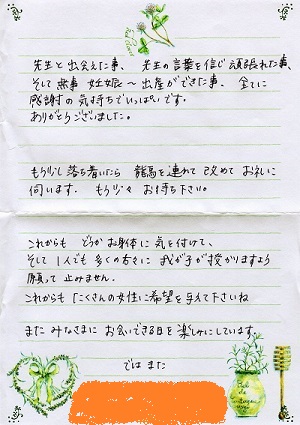 先生と出会えた事、先生の言葉を信じ頑張れた事、
そして無事 妊娠〜出産ができた事、全てに
感謝の気持ちでいっぱいです。
ありがとうございました。
もう少し落ち着いたら 龍馬を連れて 改めて お礼に
伺います。 もう少々 お待ち下さい。
これからも どうか お身体に 気を付けて、
そして 1人でも 多くの方々に 我が子が 授かりますよう
願って 止みません。
これからも たくさんの女性に 希望を 与えて下さいね
また みなさまに お会いできる日を 楽しみにしています。
では また